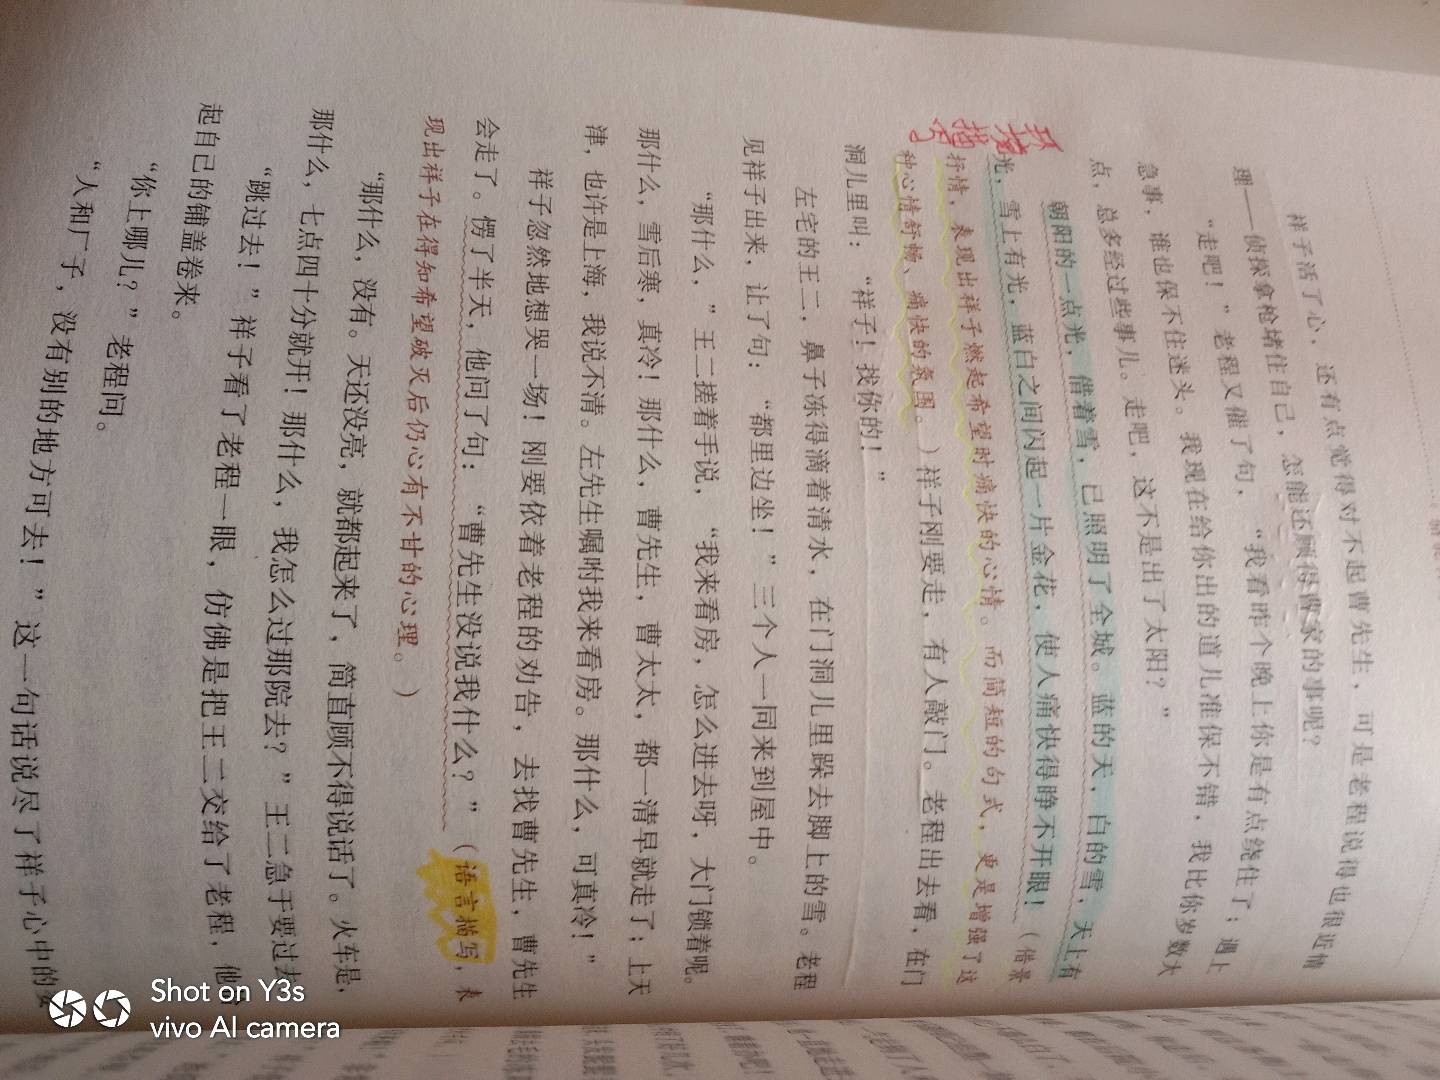 祥子活了心，还有点觉得对不起曹先生，可是老程说得也很近情
理——侦探拿枪堵住自己，怎能还顾得曹家的事呢？
“走吧！”老程又催了句，“我看昨个晚上你是有点绕住了；遇上
急事，谁也保不住迷头。我现在给你出的道儿准保不错，我比你岁数大
点，总多经过些事儿。走吧，这不是出了太阳？”
朝阳的一点光，借着雪，已照明了全城。蓝的天，白的雪，天上有
光，雪上有光，蓝白之间闪起一片金花，使人痛快得睁不开眼！（借景
抒情，表现出祥子燃起希望时痛快的心情。而简短的句式，更是增强了这
种心情舒畅、痛快的氛围。）祥子刚要走，有人敲门。老程出去看，在门
洞儿里叫：“祥子！找你的！”
环境
描写
左宅的王二，鼻子冻得滴着清水，在门洞儿里跺去脚上的雪。老程
见祥子出来，让了句：“都里边坐！”三个人一同来到屋中。
“那什么，”王二搓着手说，“我来看房，怎么进去呀，大门锁着呢。
那什么，雪后寒，真冷！那什么，曹先生，曹太太，都一清早就走了；上天
津，也许是上海，我说不清。左先生嘱咐我来看房。那什么，可真冷！”
祥子忽然地想哭一场！刚要依着老程的劝告，去找曹先生，曹先生
会走了。愣了半天，他问了句：“曹先生没说我什么？”（语言描写，表
现出祥子在得知希望破灭后仍心有不甘的心理。）
“那什么，没有。天还没亮，就都起来了，简直顾不得说话了。火车是，
那什么，七点四十分就开！那什么，我怎么过那院去？”王二急于要过去
“跳过去！”祥子看了老程一眼，仿佛是把王二交给了老程，他
起自己的铺盖卷来。
“你上哪儿？”老程问。
“人和厂子，没有别的地方可去！”这一句话说尽了祥子心中的
Shot on Y3s
vivo AI camera